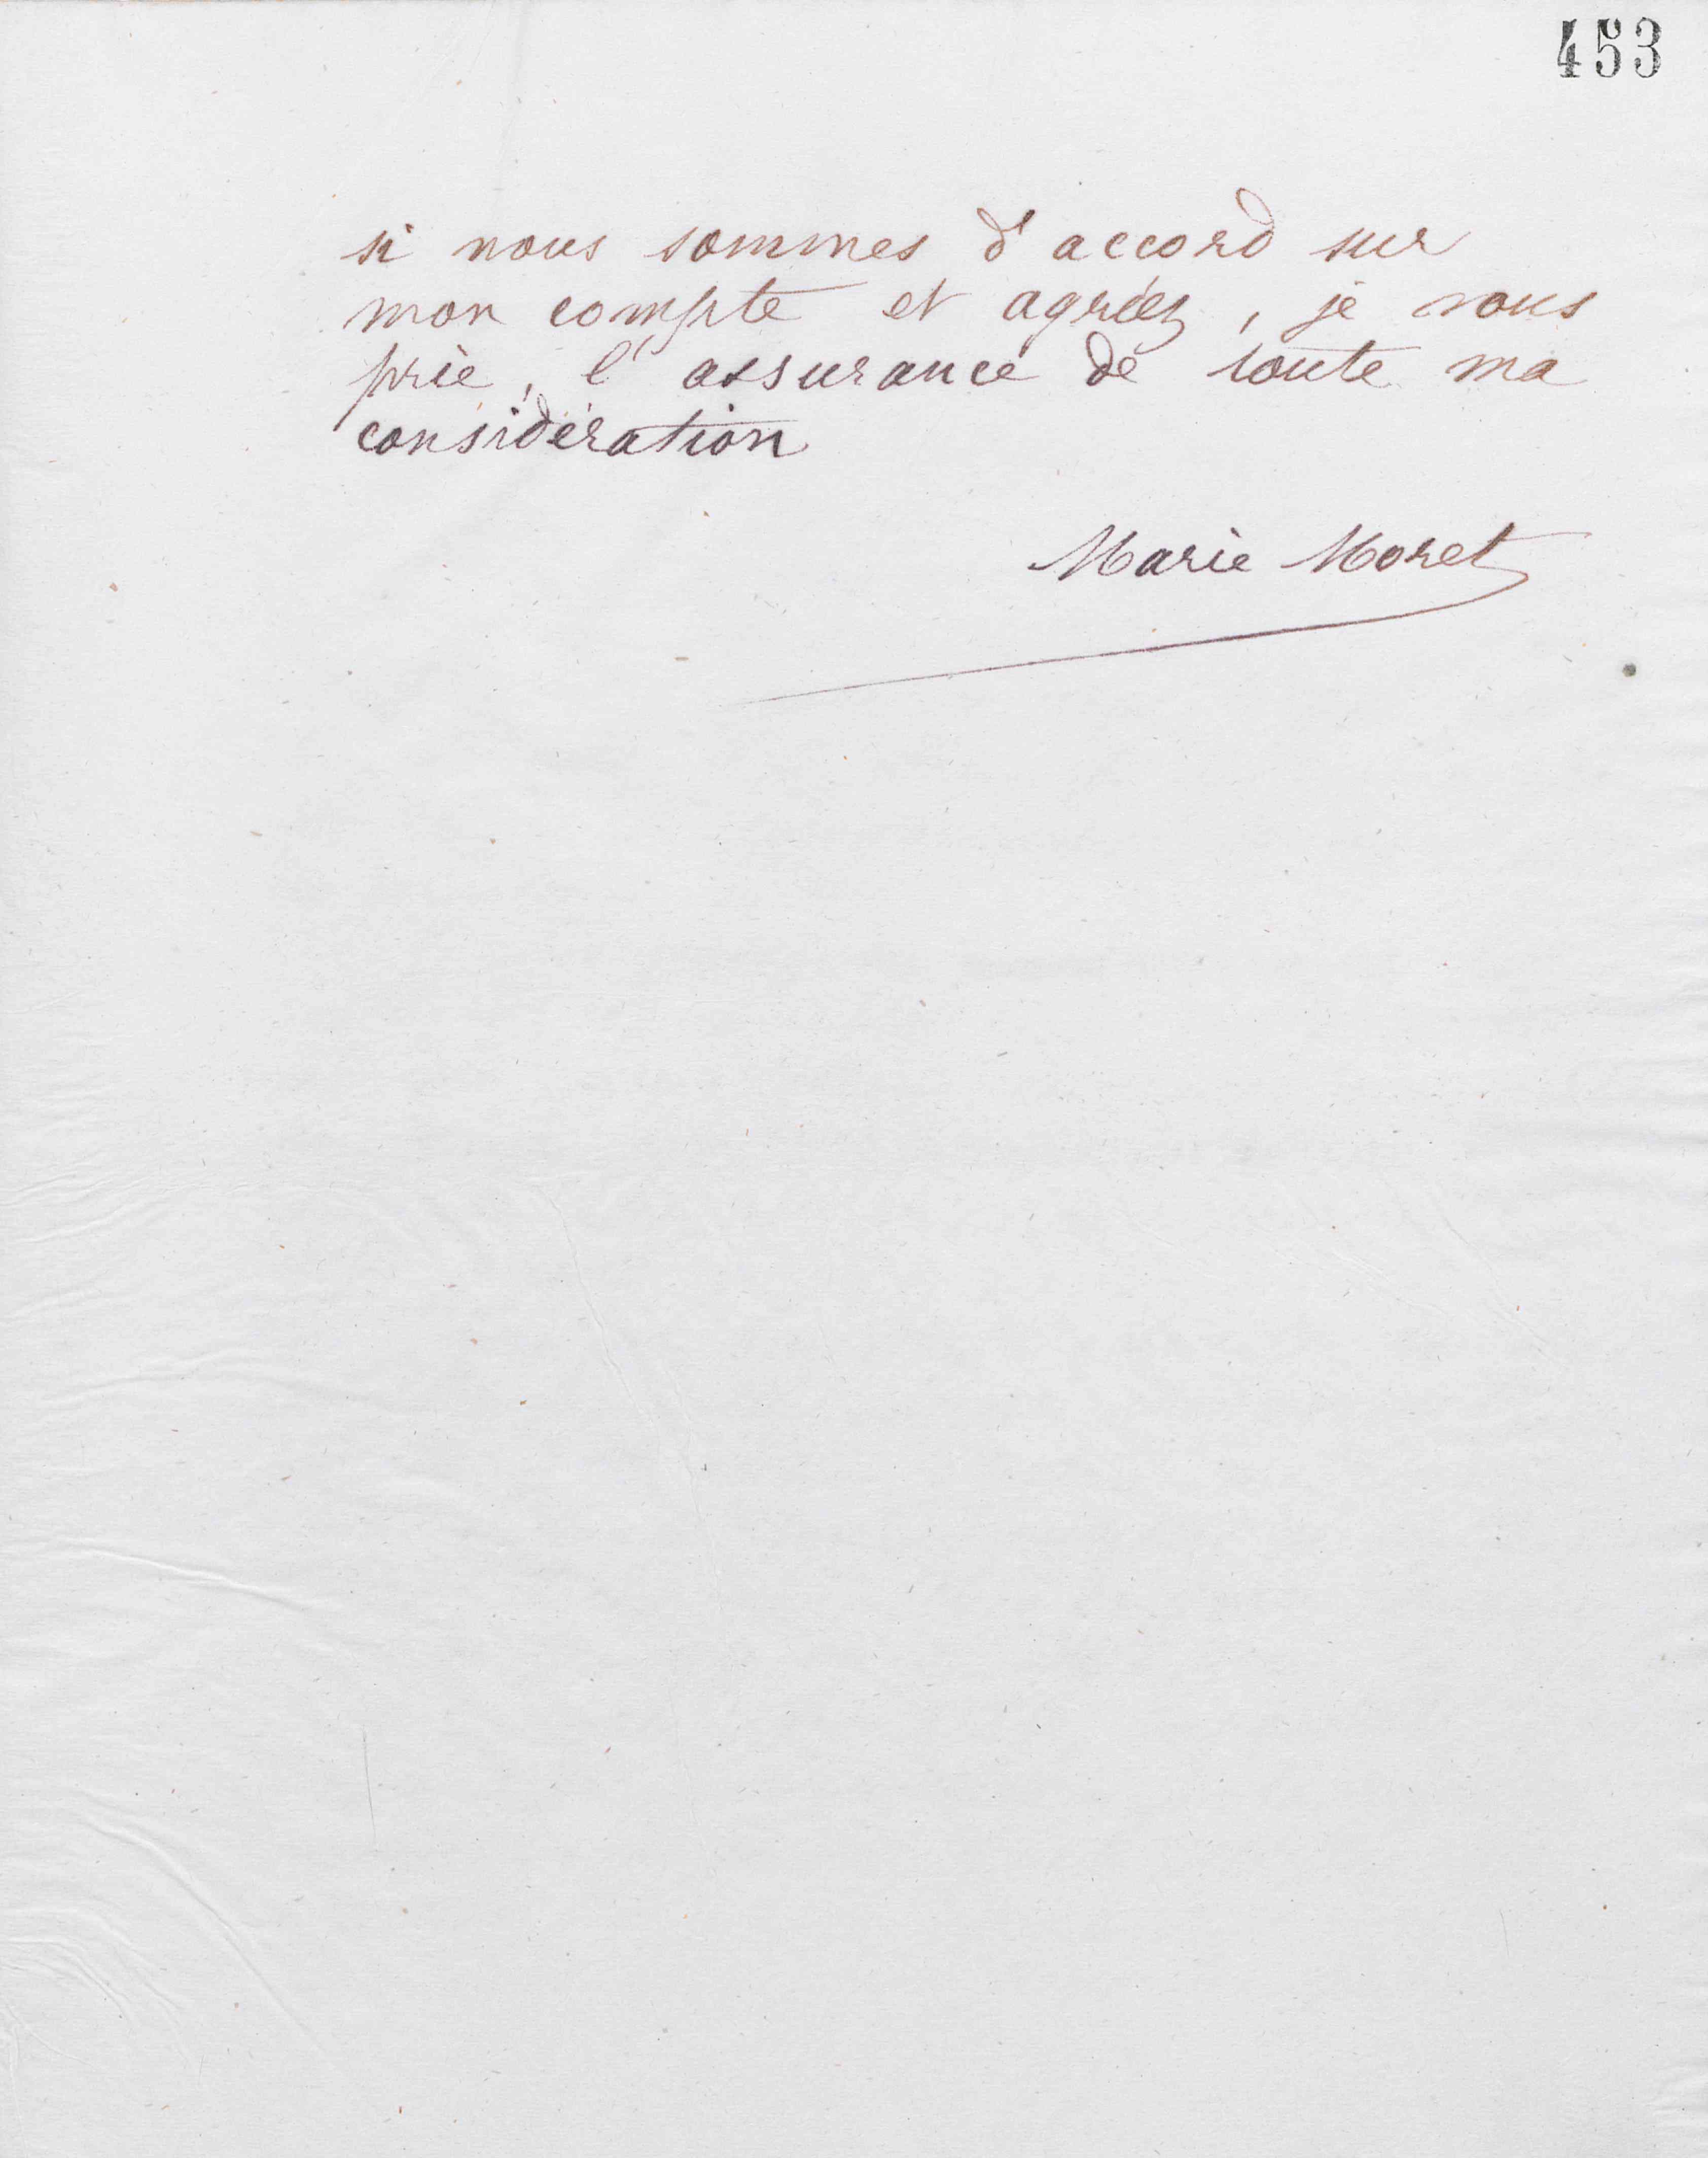 453
si nous sommes d'accord sur
mon compte et agréez, je vous
prie, l'assurance de toute ma
considération
Marie Moret